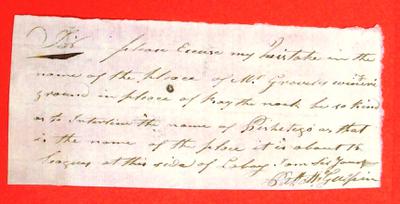 Sir please Excuse my mistake in the
name of the place of Mr Gravels wintering
ground in place of Kay the nock be so kind
as to Interline the name of Pishetego as that
is the name of the place it is about 16
leagues at this side of Labay I am Sir Your